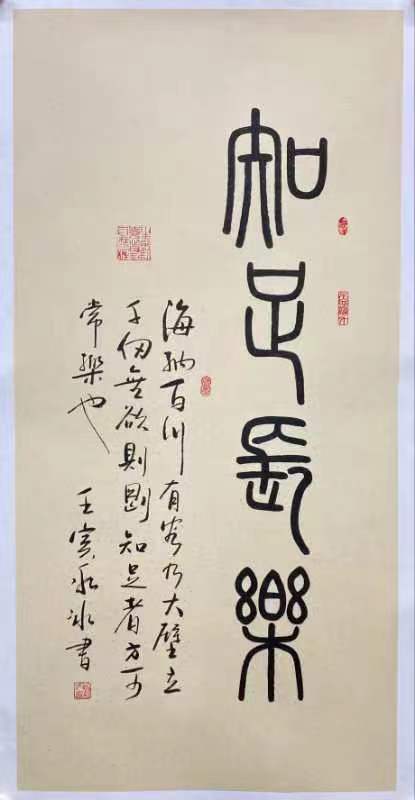 知足長樂
海納百川有容乃大壁立
千仞無欲則剛知足者方可
常樂也 壬寅永冰書